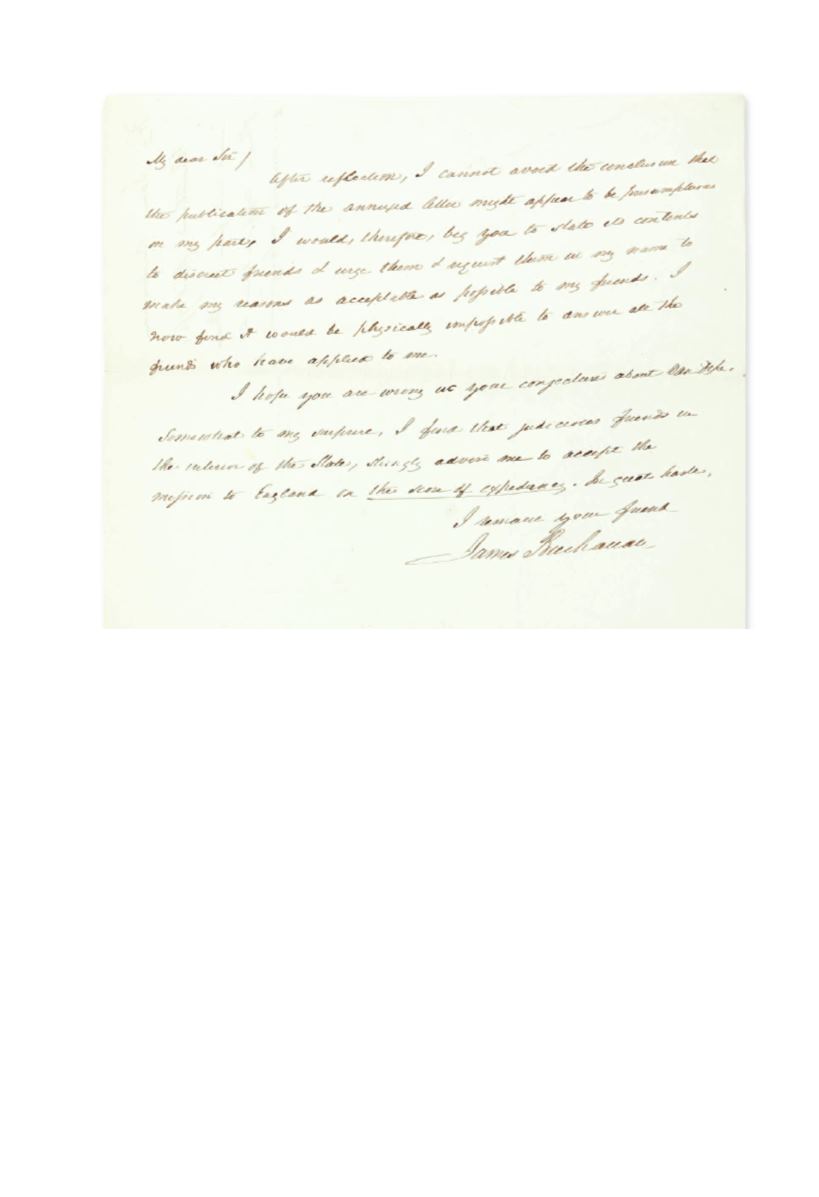 My dear Sir /
After reflection, I cannot avoid the conclusion that
the publication of the annexed letter might appear to be presumptuous
on my part, I would, therefore, beg you to state its contents
to discreet friends & urge them & request them in my name to
make my reasons as acceptable as possible to my friends. I
now find it would be physically impossible to answer all the
friends who have applied to me.
I hope you are wrong in your conjectures about
Somewhat to my surprise, I find that judicious friends in
the interior of the State, strongly advise me to accept the
mission to England on the score of expediency. In great haste,
I remain your friend
James Buchanan